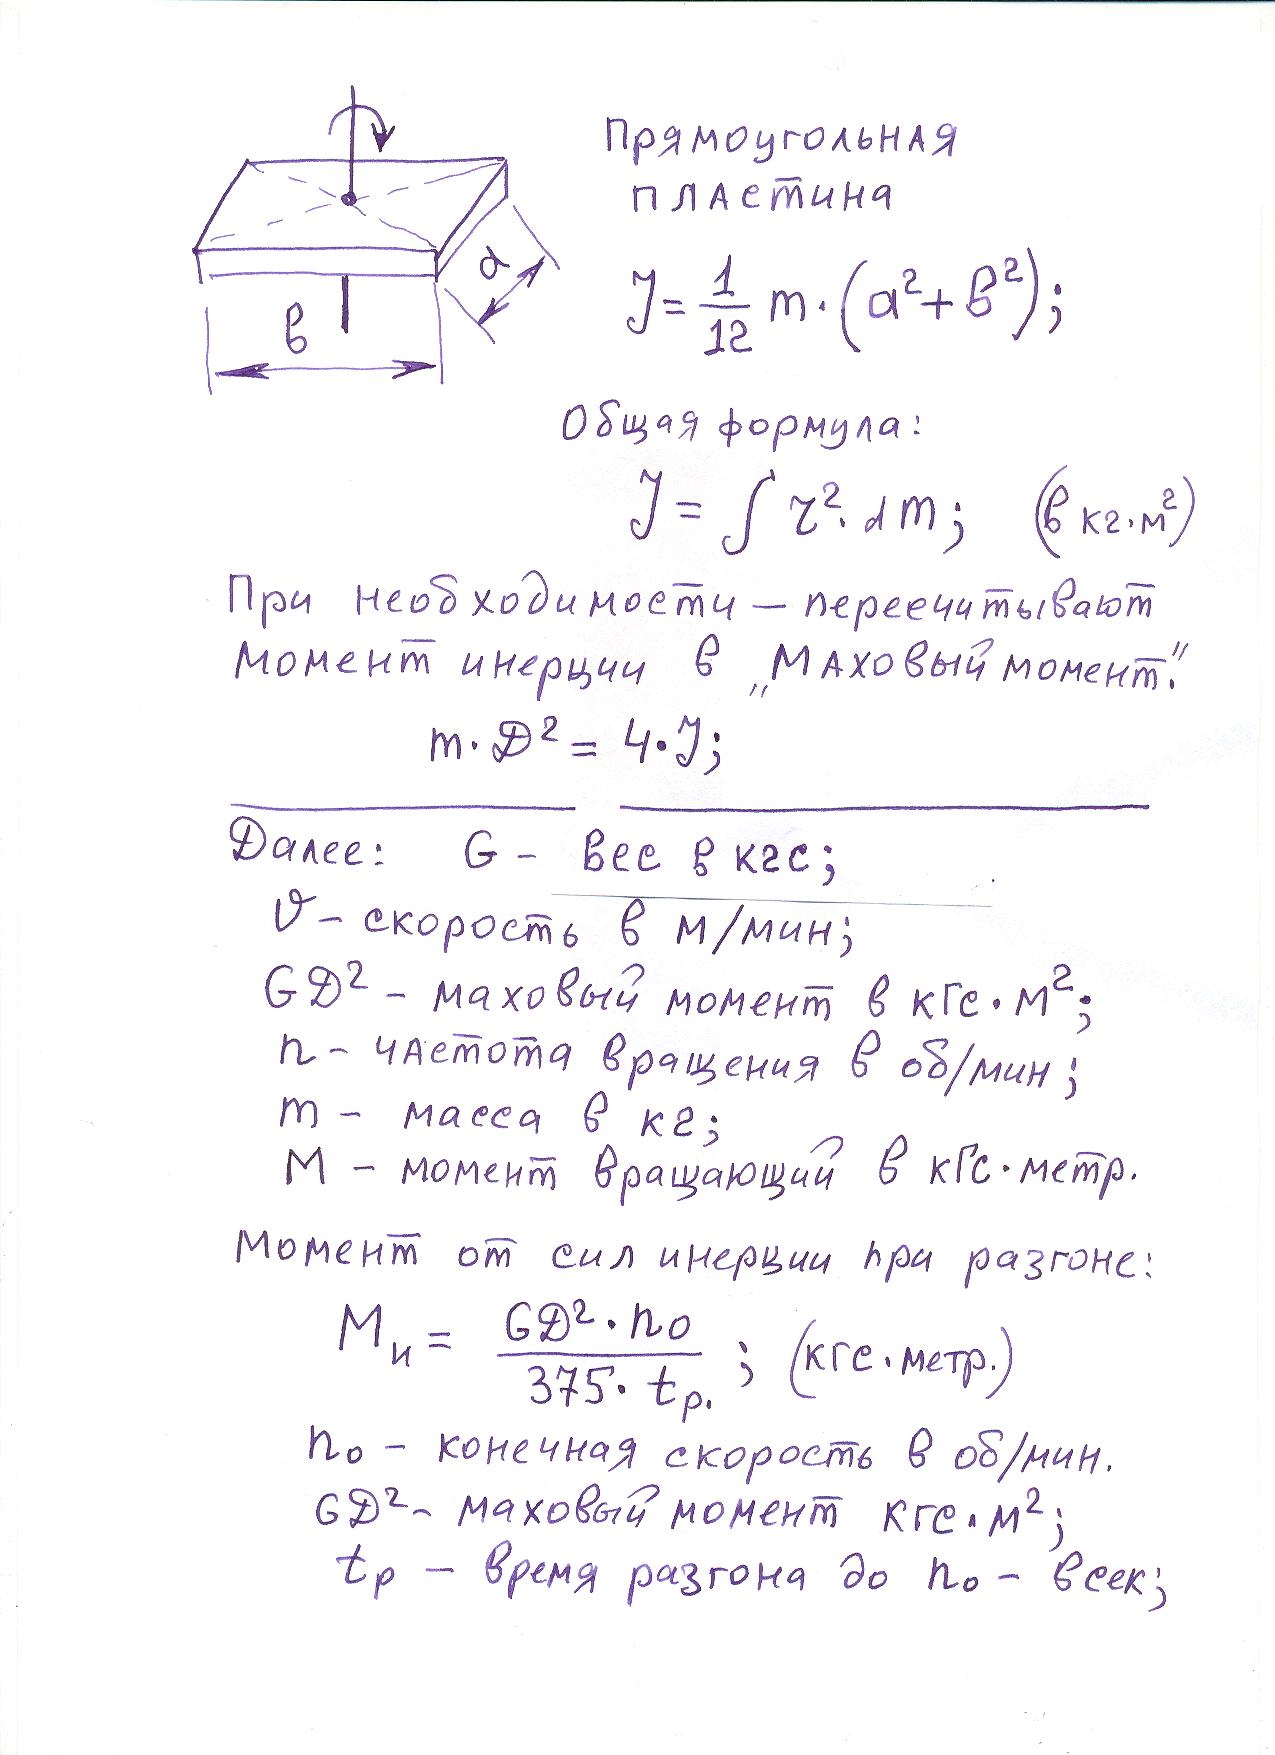 Прямоугольная
пластина
J = 1/12 m·(a²+в²);
a
в
Общая формула:
J = ∫ r²·dm; (в кг·м²)
При необходимости – пересчитывают
момент инерции в „Маховый момент."
m·D² = 4·J;
Далее: G – вес в кгс;
v – скорость в м/мин;
GD² – маховый момент в кГс·м²;
n – частота вращения в об/мин;
m – масса в кг;
M – момент вращающий в кГс·метр.
Момент от сил инерции при разгоне:
Mи = GD²·no / 375·tр. ; (кГс·метр.)
no – конечная скорость в об/мин.
GD² – маховый момент кГс·м²;
tр – время разгона до no – в сек;